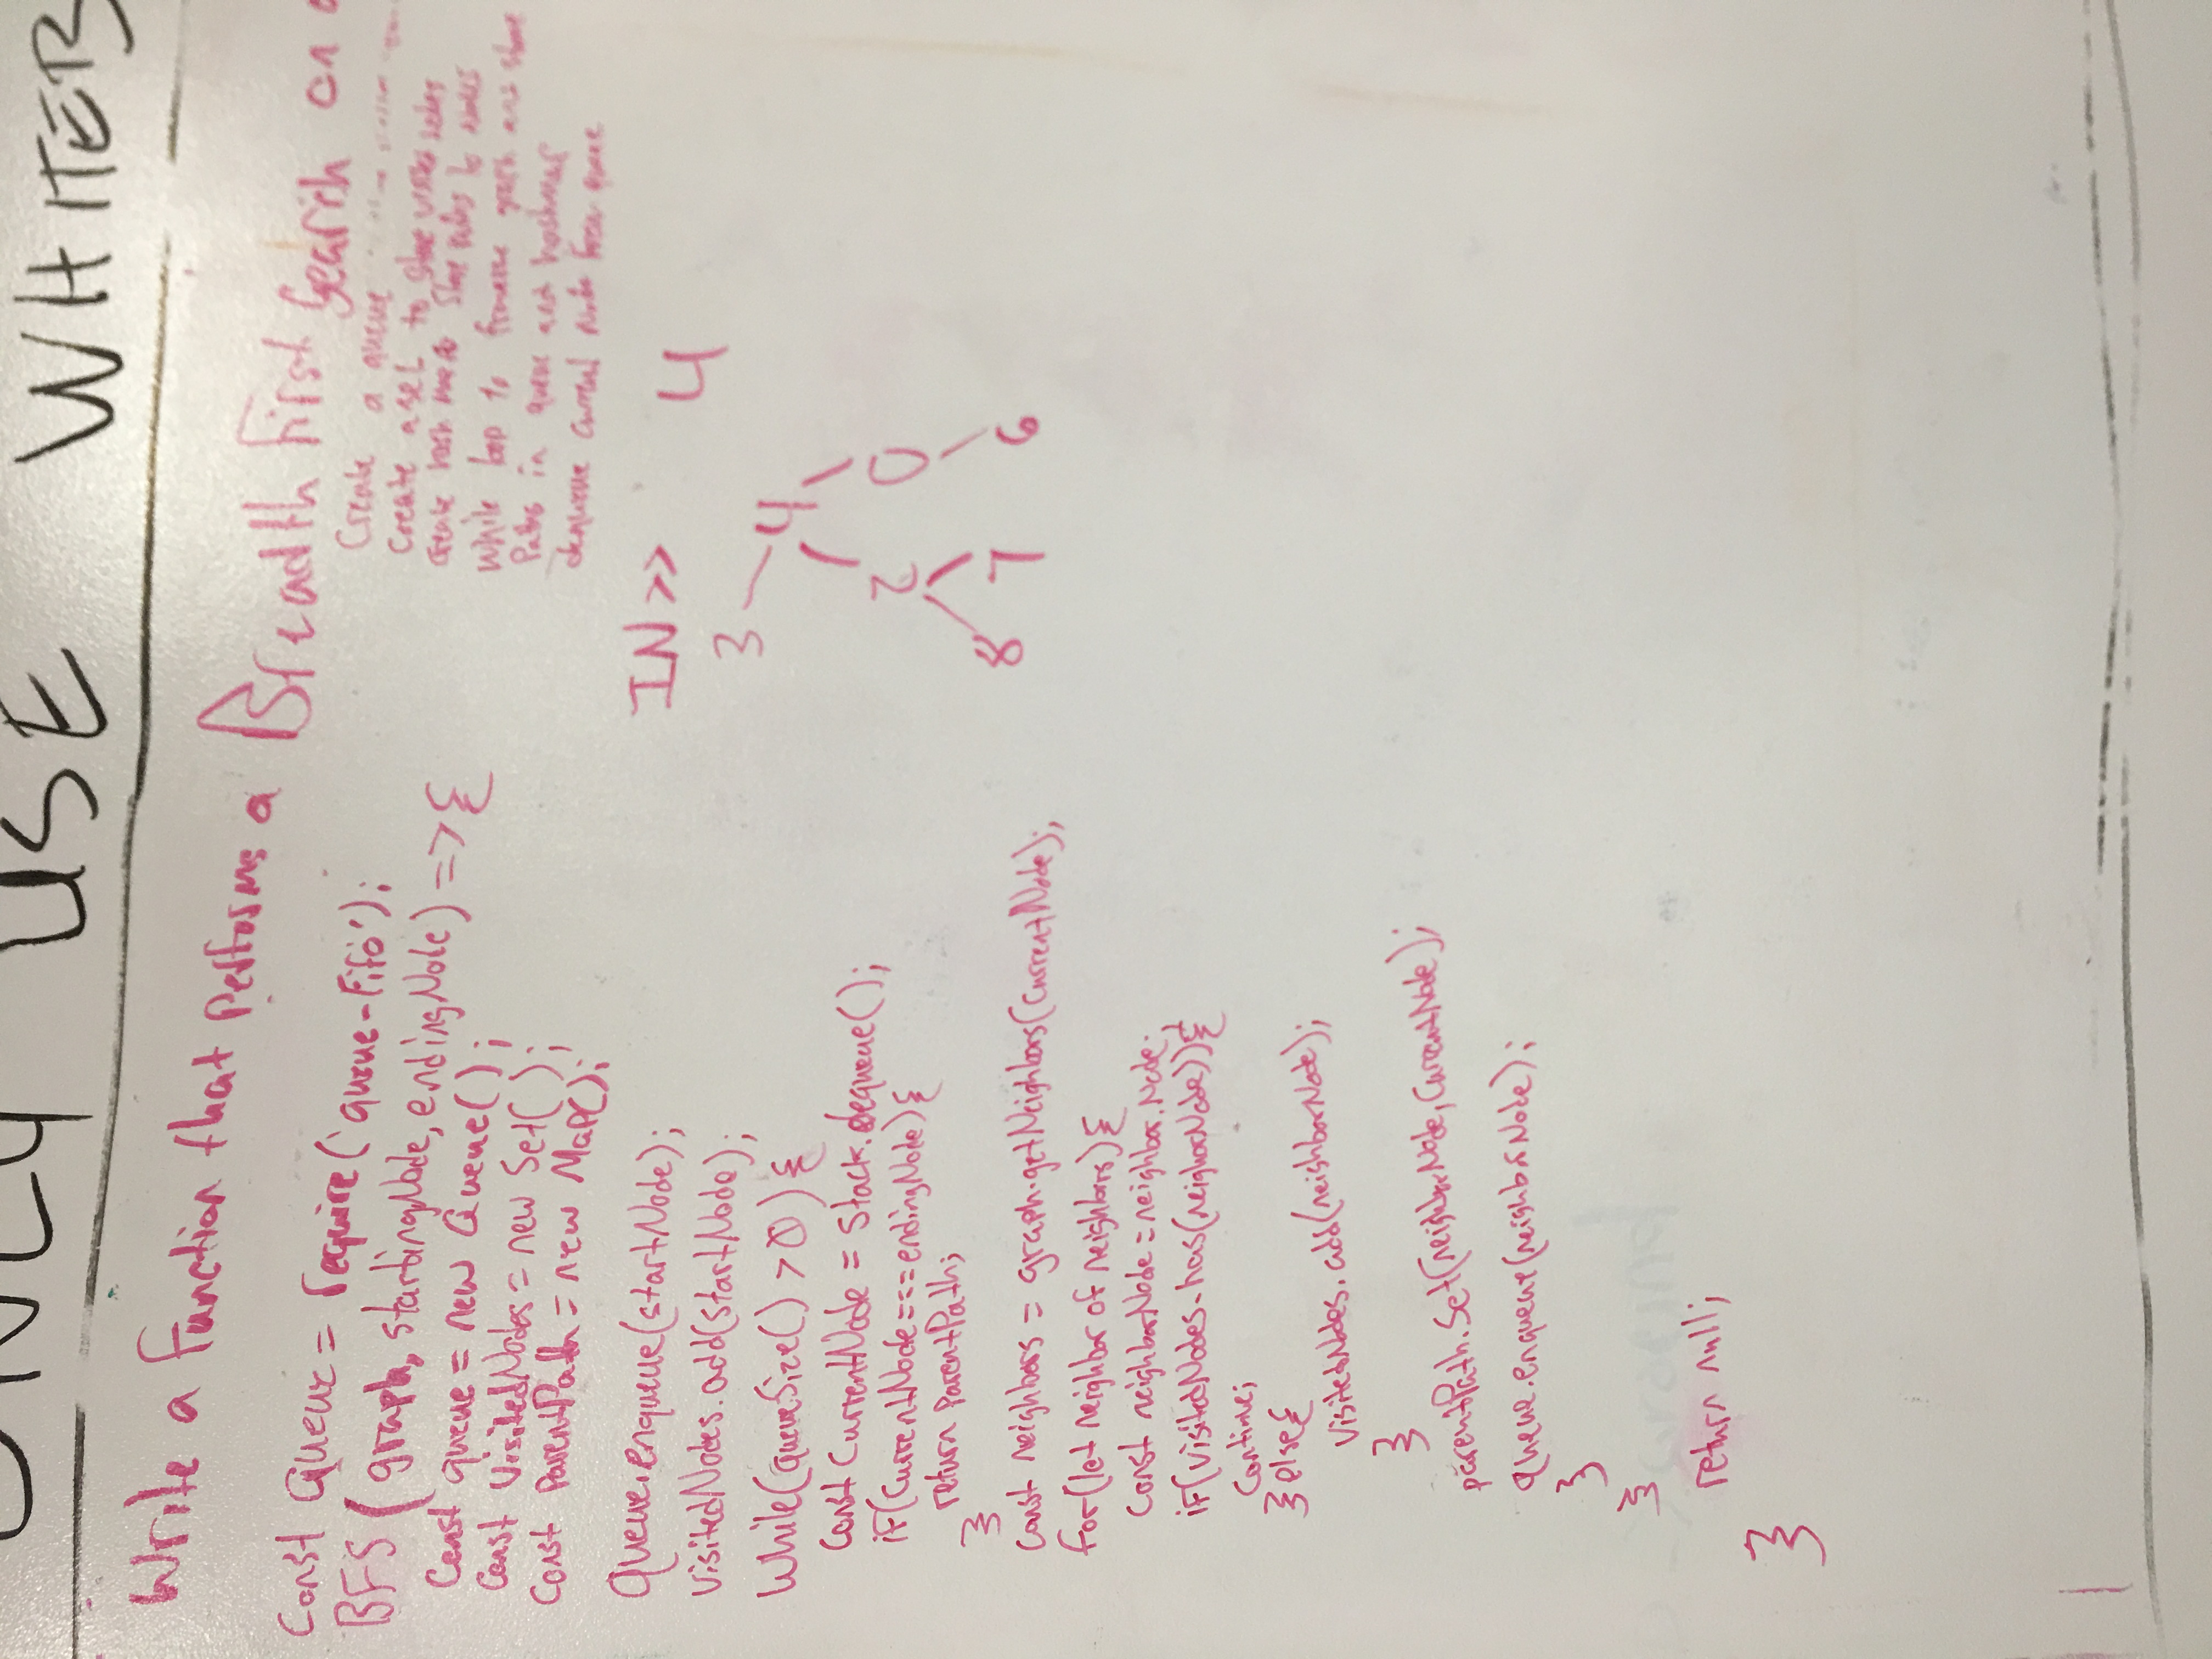 ONLY USE WHITEB
Write a function that performs a Breadth First Search on a
Const Queue = require('queue-Fifo');
BFS (graph, startingNode, endingNode) => {
Const queue = new Queue();
Const visitedNodes = new Set();
Const ParentPath = new Map();
Queue.enqueue(startNode);
visitedNodes.add(startNode);
While(queue.Size() > 0) {
Const CurrentNode = Stack.dequeue();
if(CurrentNode===endingNode){
return ParentPath;
}
const neighbors = graph.getNeighbors(CurrentNode);
for(let neighbor of neighbors){
Const neighborNode = neighbor.Node;
if(visitedNodes.has(neighorNode)){
Continue;
}else{
visitedNodes.add(neighborNode);
}
parentPath.Set(neighborNode, CurrentNode);
queue.enqueue(neighborNode);
}
}
return null;
}
Create a queue
Create a set to store visited nodes
Create hash map to store to nodes
While loop to traverse graph and store
Paths in queue and hashmap
dequeue current node from queue
IN >> 4
3 4
2 0
8 7 6